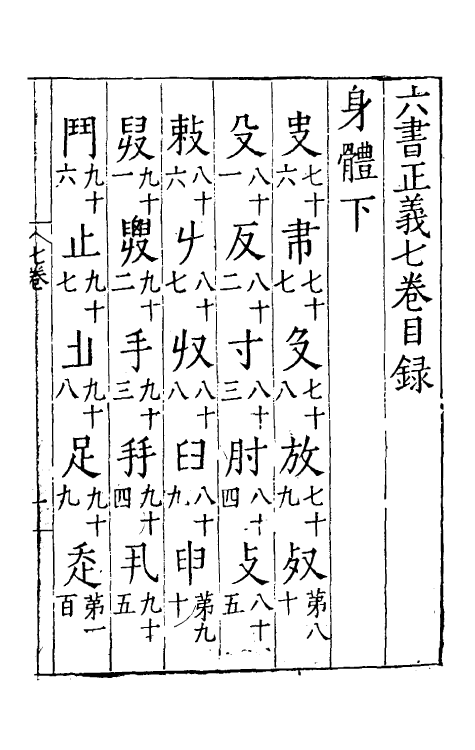 六書正義七卷目錄
身體下
七十六 七十七 七十八 放七十九 㕡第八十
殳八十一 反八十二 寸八十三 肘八十四 攴八十五
八十六 𠂇八十七 収八十八 臼八十九 申第九十
九十一 九十二 手九十三 九十四 丮九十五
鬥九十六 止九十七 九十八 足九十九 第一百
七卷 一